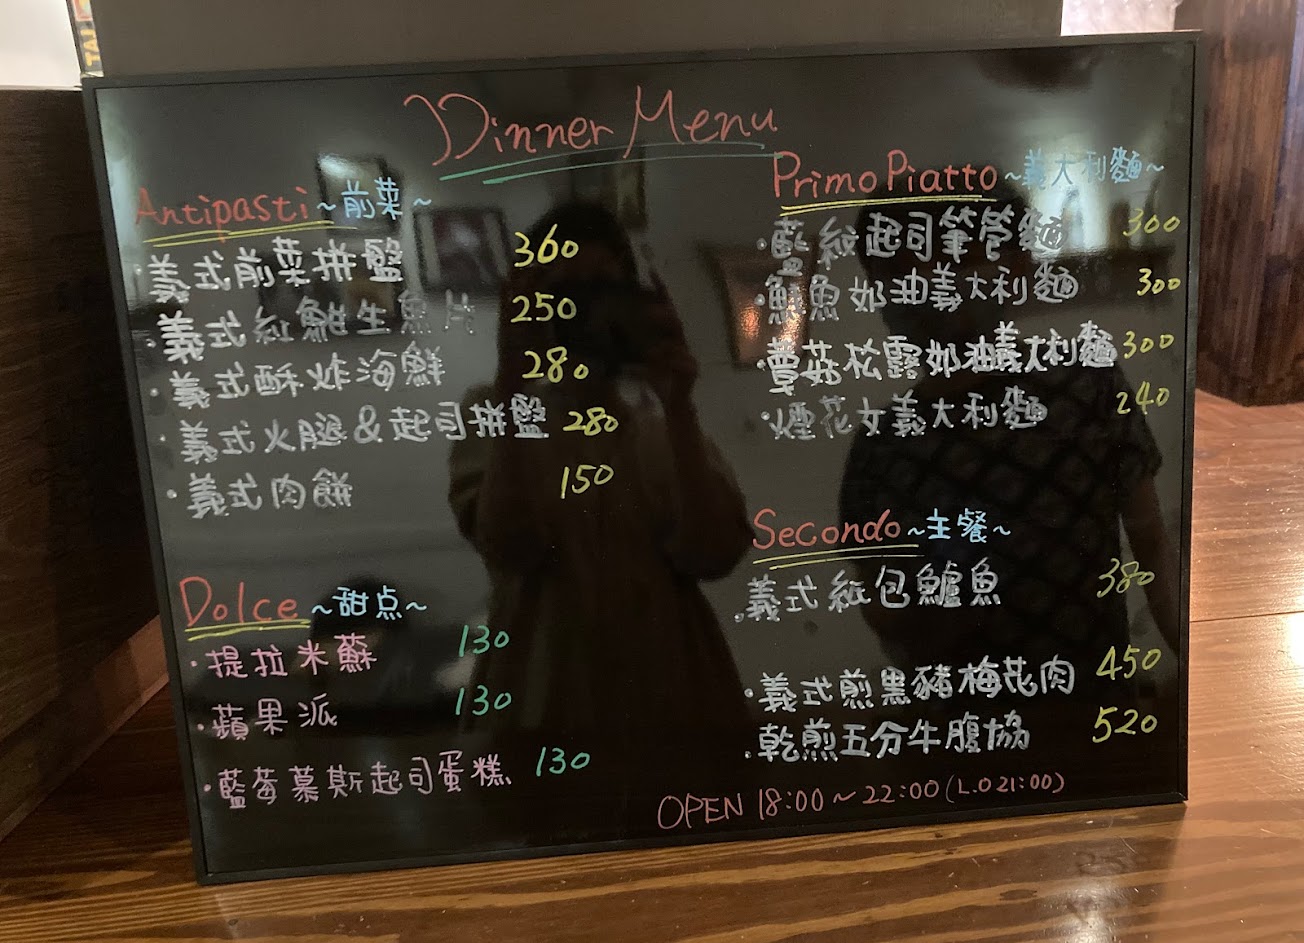 Dinner Menu
Antipasti ~前菜~
·義式前菜拼盤 360
·義式紅魽生魚片 250
·義式酥炸海鮮 280
·義式火腿&起司拼盤 280
·義式肉餅 150
Dolce ~甜点~
·提拉米蘇 130
·蘋果派 130
·藍莓慕斯起司蛋糕 130
Primo Piatto ~義大利麵~
·藍紋起司筆管麵 300
·鯷魚奶油義大利麵 300
·蘑菇松露奶油義大利麵 300
·煙花女義大利麵 240
Secondo ~主餐~
·義式紙包鱸魚 380
·義式煎黑豬梅花肉 450
·乾煎五分牛腹協 520
OPEN 18:00~22:00(L.O 21:00)